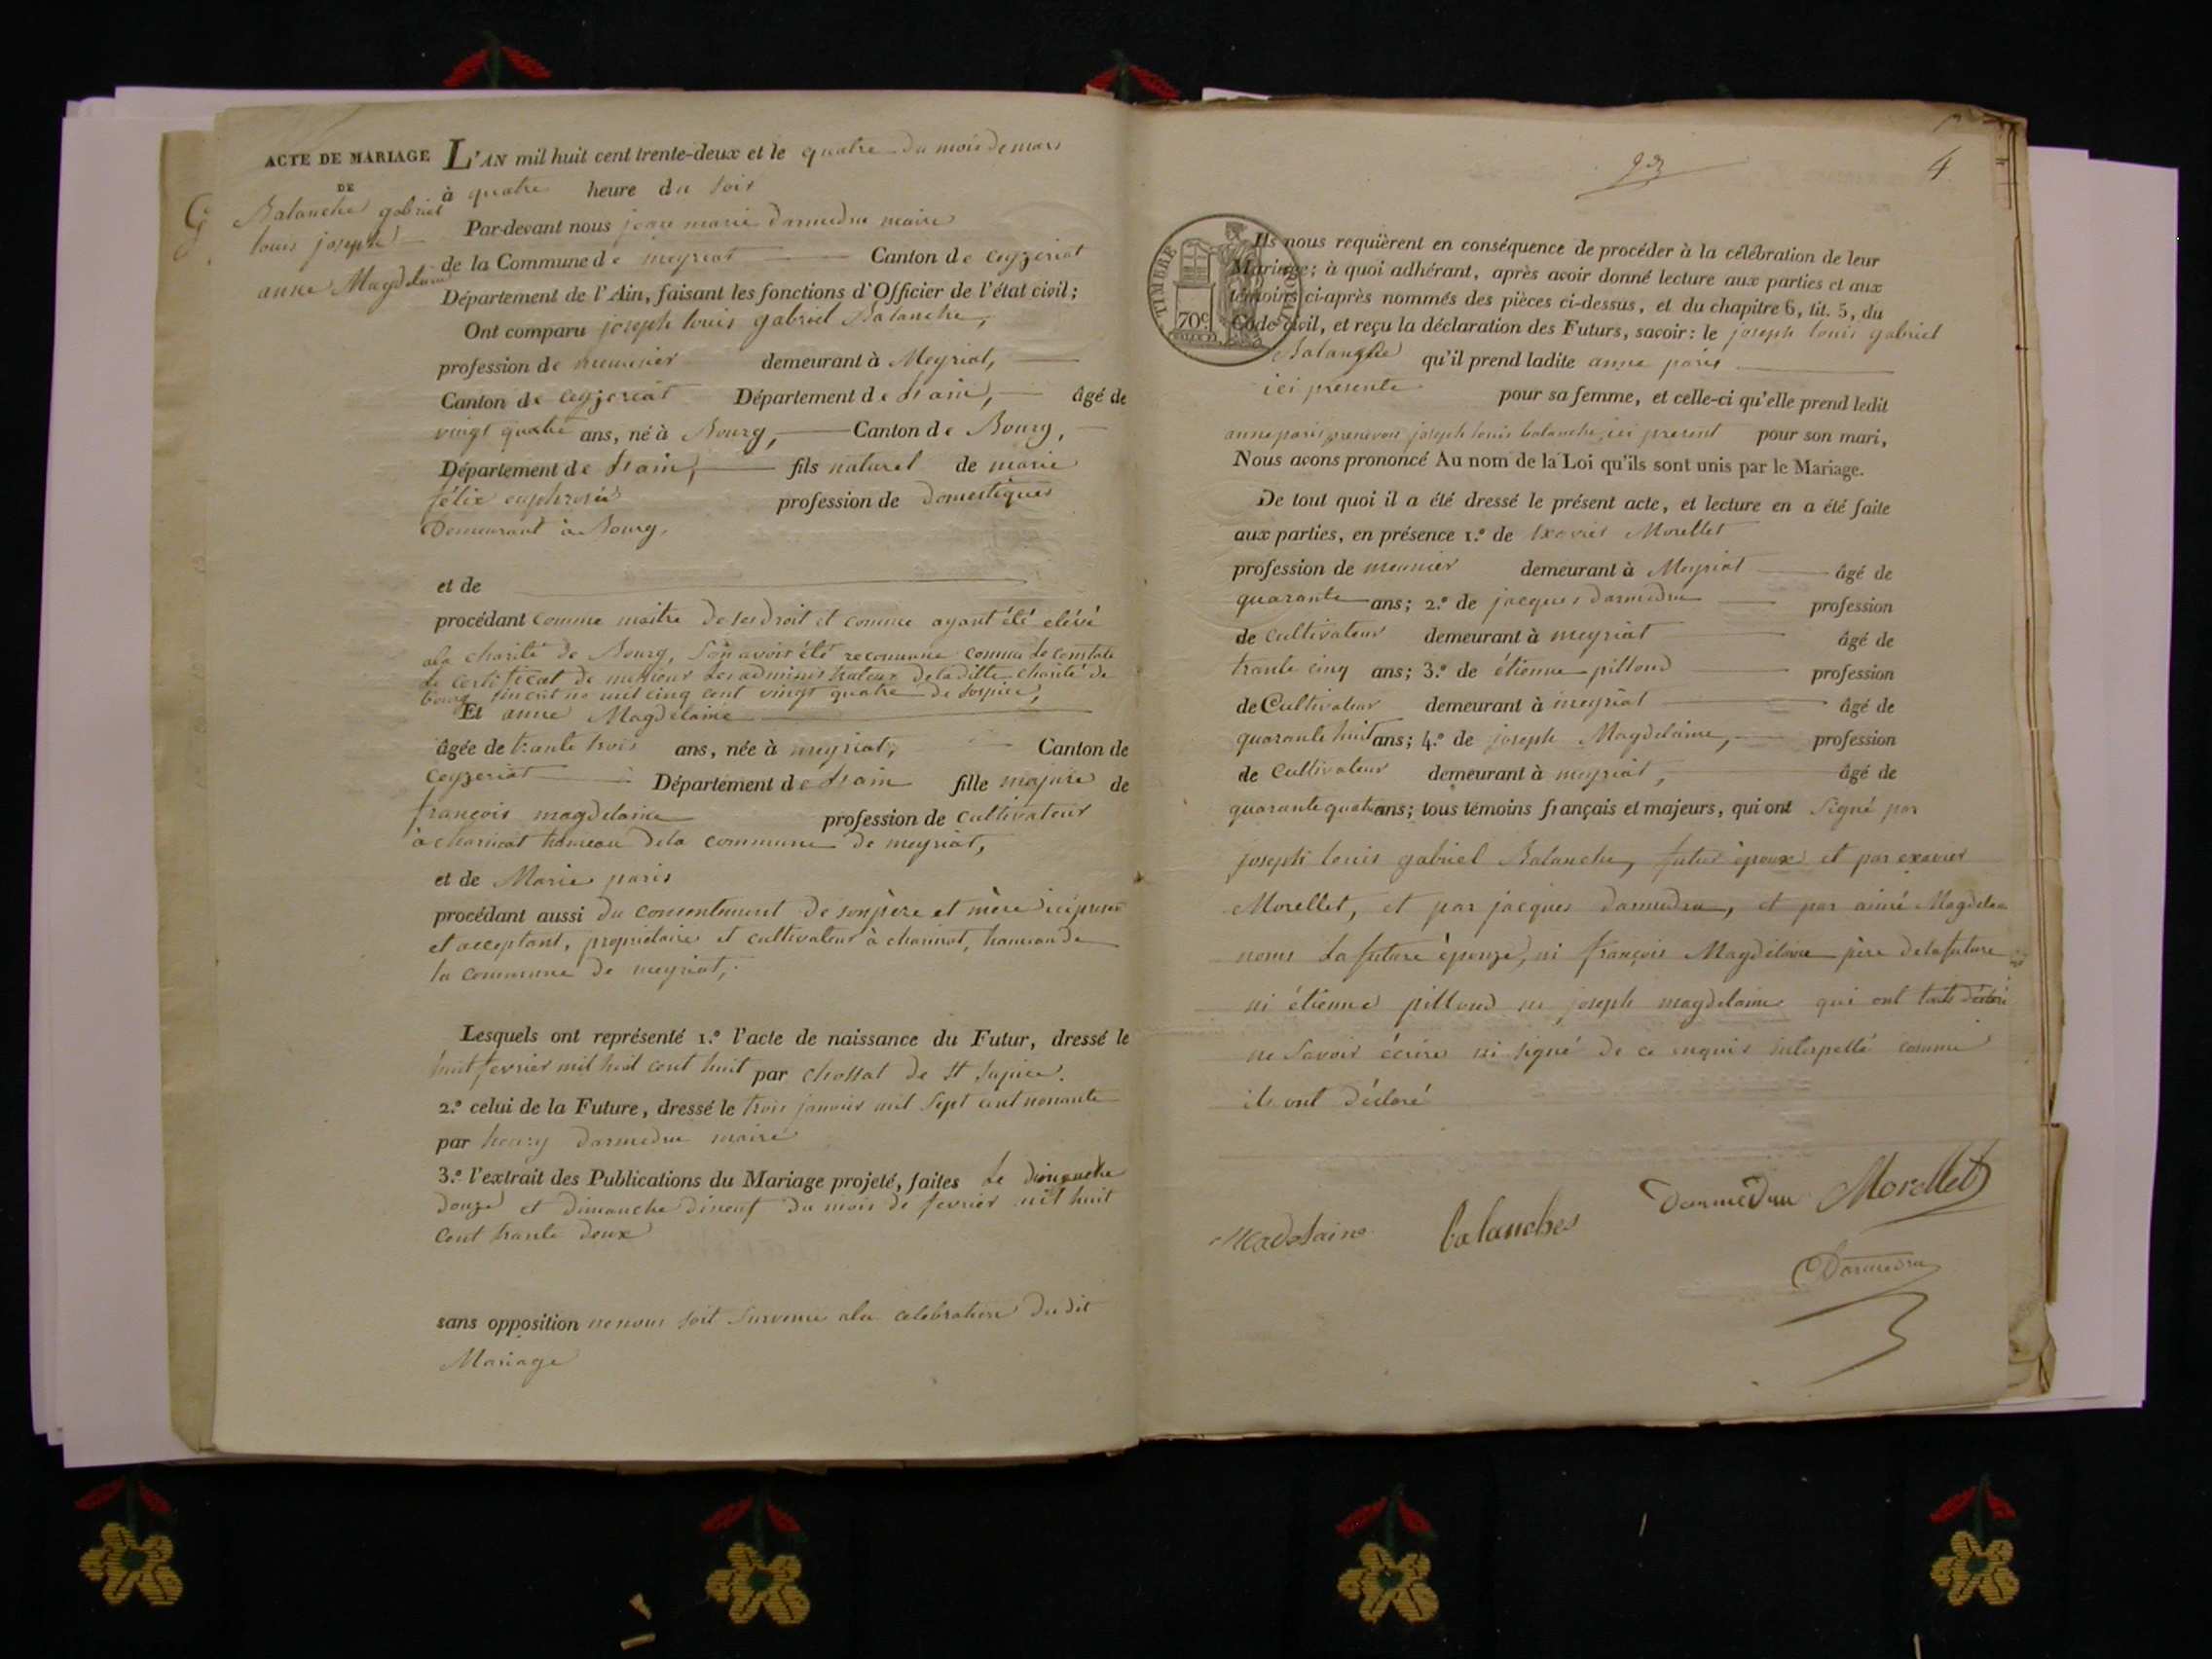 ACTE DE MARIAGE
DE
Balanche gabriel
louis joseph
anne Magdelaine
L'AN mil huit cent trente-deux et le quatre du mois de mars
à quatre heure du soir
Par-devant nous jean marie darmedru maire
de la Commune de meyriat Canton de ceyzeriat
Département de l'Ain, faisant les fonctions d'Officier de l'état civil;
Ont comparu joseph louis gabriel Balanche,
profession de meunier demeurant à Meyriat,
Canton de ceyzeriat Département de l'ain, âgé de
vingt quatre ans, né à Bourg, Canton de Bourg,
Département de l'ain, fils naturel de marie
félix euphrosie profession de domestiques
Demeurant à Bourg,
et de
procédant comme maitre de ses droit et comme ayant été elévé
a la charité de Bourg, avoir été reconnue comme le constate
le certificat de messieur les administrateur de la ditte charité de
bourg inscrit no mil cinq cent vingt quatre de
Et anne Magdelaine
âgée de trante trois ans, née à meyriat, Canton de
Ceyzeriat Département de l'ain fille majure de
françois magdelaine profession de cultivateur
à charinat hameau de la commune de meyriat,
et de Marie paris
procédant aussi du consentement de son père et mère ici present
et acceptant, propriétaire et cultivateur à charinat, hameau de
la commune de meyriat,
Lesquels ont représenté 1.º l'acte de naissance du Futur, dressé le
huit fevrier mil huit cent huit par chossat de St Supice.
2.º celui de la Future, dressé le trois janvier mil sept cent nonante
par henry darmedru maire
3.º l'extrait des Publications du Mariage projeté, faites le dimanche
douze et dimanche dineuf du mois de fevrier mil huit
cent trante deux
sans opposition ne nous soit survenue a la celebration du dit
Mariage
93
4
TIMBRE ROYAL
70c
Ils nous requièrent en conséquence de procéder à la célébration de leur
Mariage; à quoi adhérant, après avoir donné lecture aux parties et aux
témoins ci-après nommés des pièces ci-dessus, et du chapitre 6, tit. 5, du
Code civil, et reçu la déclaration des Futurs, savoir: le joseph louis gabriel
Balanche qu'il prend ladite anne paris
ici presente pour sa femme, et celle-ci qu'elle prend ledit
anne paris joseph louis balanche ici present pour son mari,
Nous avons prononcé Au nom de la Loi qu'ils sont unis par le Mariage.
De tout quoi il a été dressé le présent acte, et lecture en a été faite
aux parties, en présence 1.º de Morellet
profession de meunier demeurant à Meyriat âgé de
quarante ans; 2.º de jacques darmedru profession
de cultivateur demeurant à meyriat âgé de
trante cinq ans; 3.º de étienne pilloud profession
de Cultivateur demeurant à meyriat âgé de
quarante huit ans; 4.º de joseph Magdelaine, profession
de Cultivateur demeurant à meyriat, âgé de
quarante quatre ans; tous témoins français et majeurs, qui ont signé par
joseph louis gabriel Balanche, futur époux et par exavier
Morellet, et par jacques darmedru, et par Magdelai
nous la future épouze, ni françois Magdelaine père de la future
ni étienne pilloud ni joseph magdelaine qui ont déclaré
ne savoir écrire ni signé de ce enquis interpellé comme
ils ont déclaré
Madelaine balanches Darmedru Morellet
Darmedru